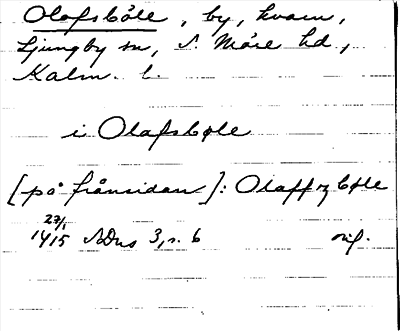 Olofsbåle, by, kvarn,
Ljungby sn, S. Möre hd,
Kalm. l.
i Olafsbøle
[på frånsidan]: Olaffzbøle
27/1
1415 SDns 3, s. 6 orig.